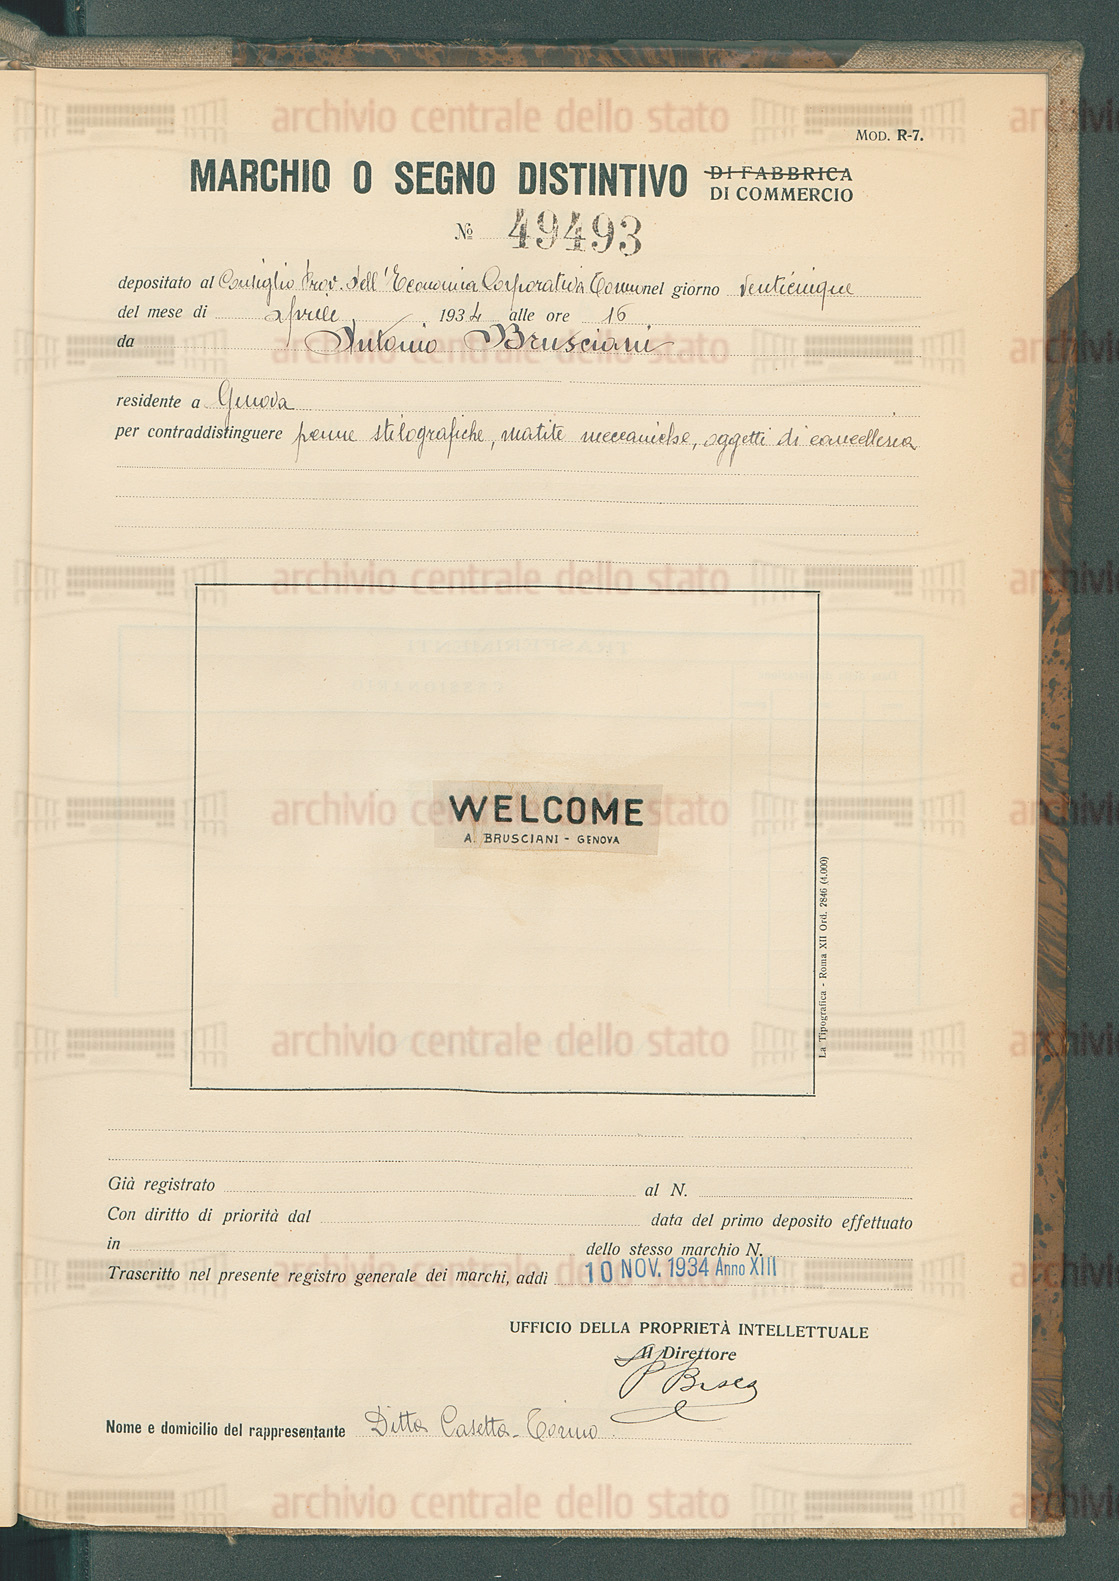 MOD. R-7.
MARCHIO O SEGNO DISTINTIVO DI FABBRICA
DI COMMERCIO
№ 49493
depositato al Consiglio Prov. dell'Economia Corporativa Torino nel giorno venticinque
del mese di aprile 1934 alle ore 16
da Antonio Brusciani
residente a Genova
per contraddistinguere penne stilografiche, matite meccaniche, oggetti di cancelleria
WELCOME
A. BRUSCIANI - GENOVA
La Tipografica - Roma XII Ord. 2846 (4.000)
Già registrato al N.
Con diritto di priorità dal data del primo deposito effettuato
in dello stesso marchio N.
Trascritto nel presente registro generale dei marchi, addì 10 NOV. 1934 Anno XIII
UFFICIO DELLA PROPRIETÀ INTELLETTUALE
Il Direttore
Nome e domicilio del rappresentante Ditta Casetta - Torino
archivio centrale dello stato
archivio centrale dello stato
archivio centrale dello stato
archivio centrale dello stato
archivio centrale dello stato
archivio centrale dello stato
archivio centrale dello stato